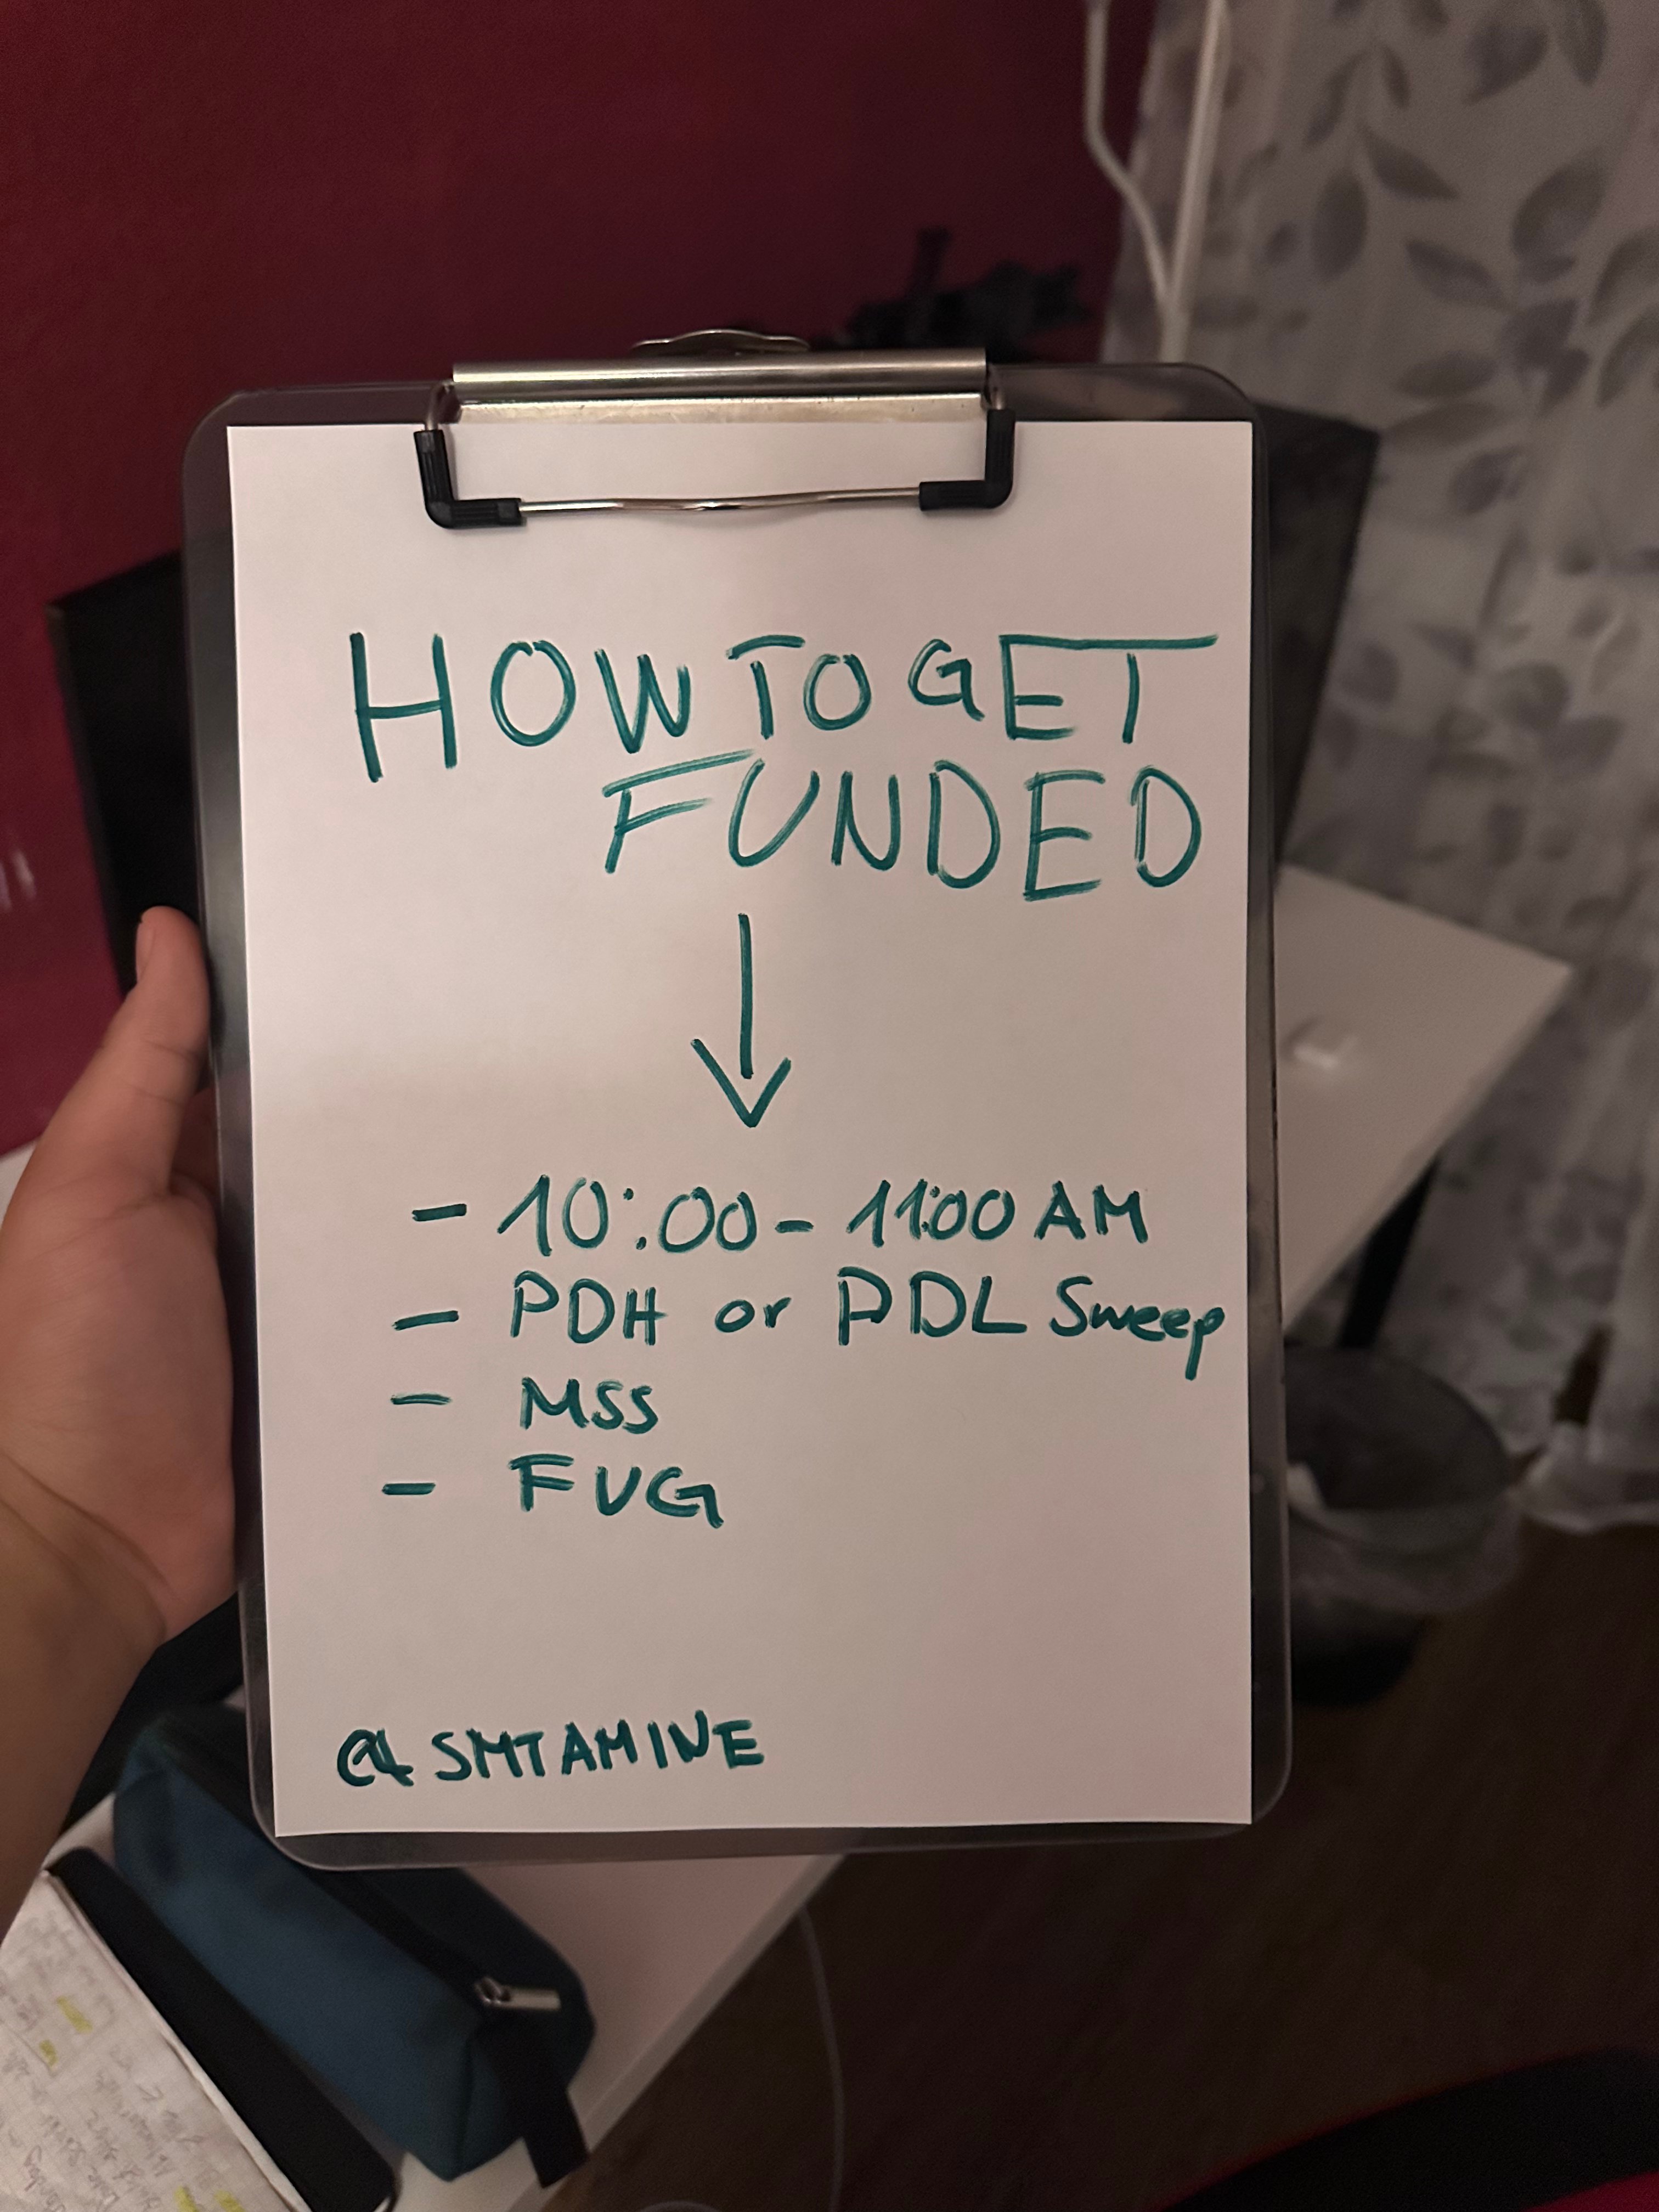 HOW TO GET
FUNDED
- 10:00 - 11:00 AM
- PDH or PDL Sweep
- MSS
- FVG